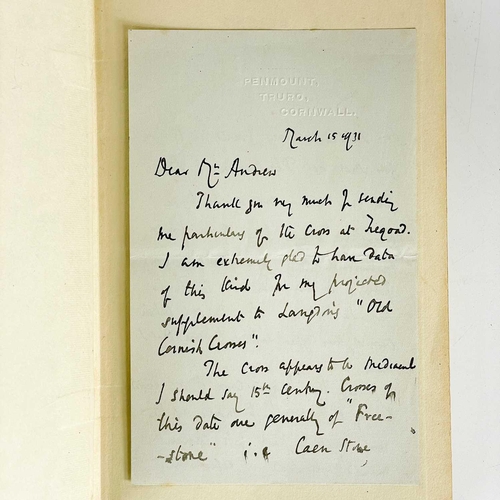 PENMOUNT,
TRURO,
CORNWALL.
March 15 1931
Dear Mr Andrew
Thank you very much for sending
me particulars of the Cross at Tregoad.
I am extremely glad to have data
of this kind for my projected
supplement to Langdon's "Old
Cornish Crosses".
The Cross appears to be mediaeval
I should say 15th century. Crosses of
this date are generally of "Free-
-stone" i.e. Caen Stone